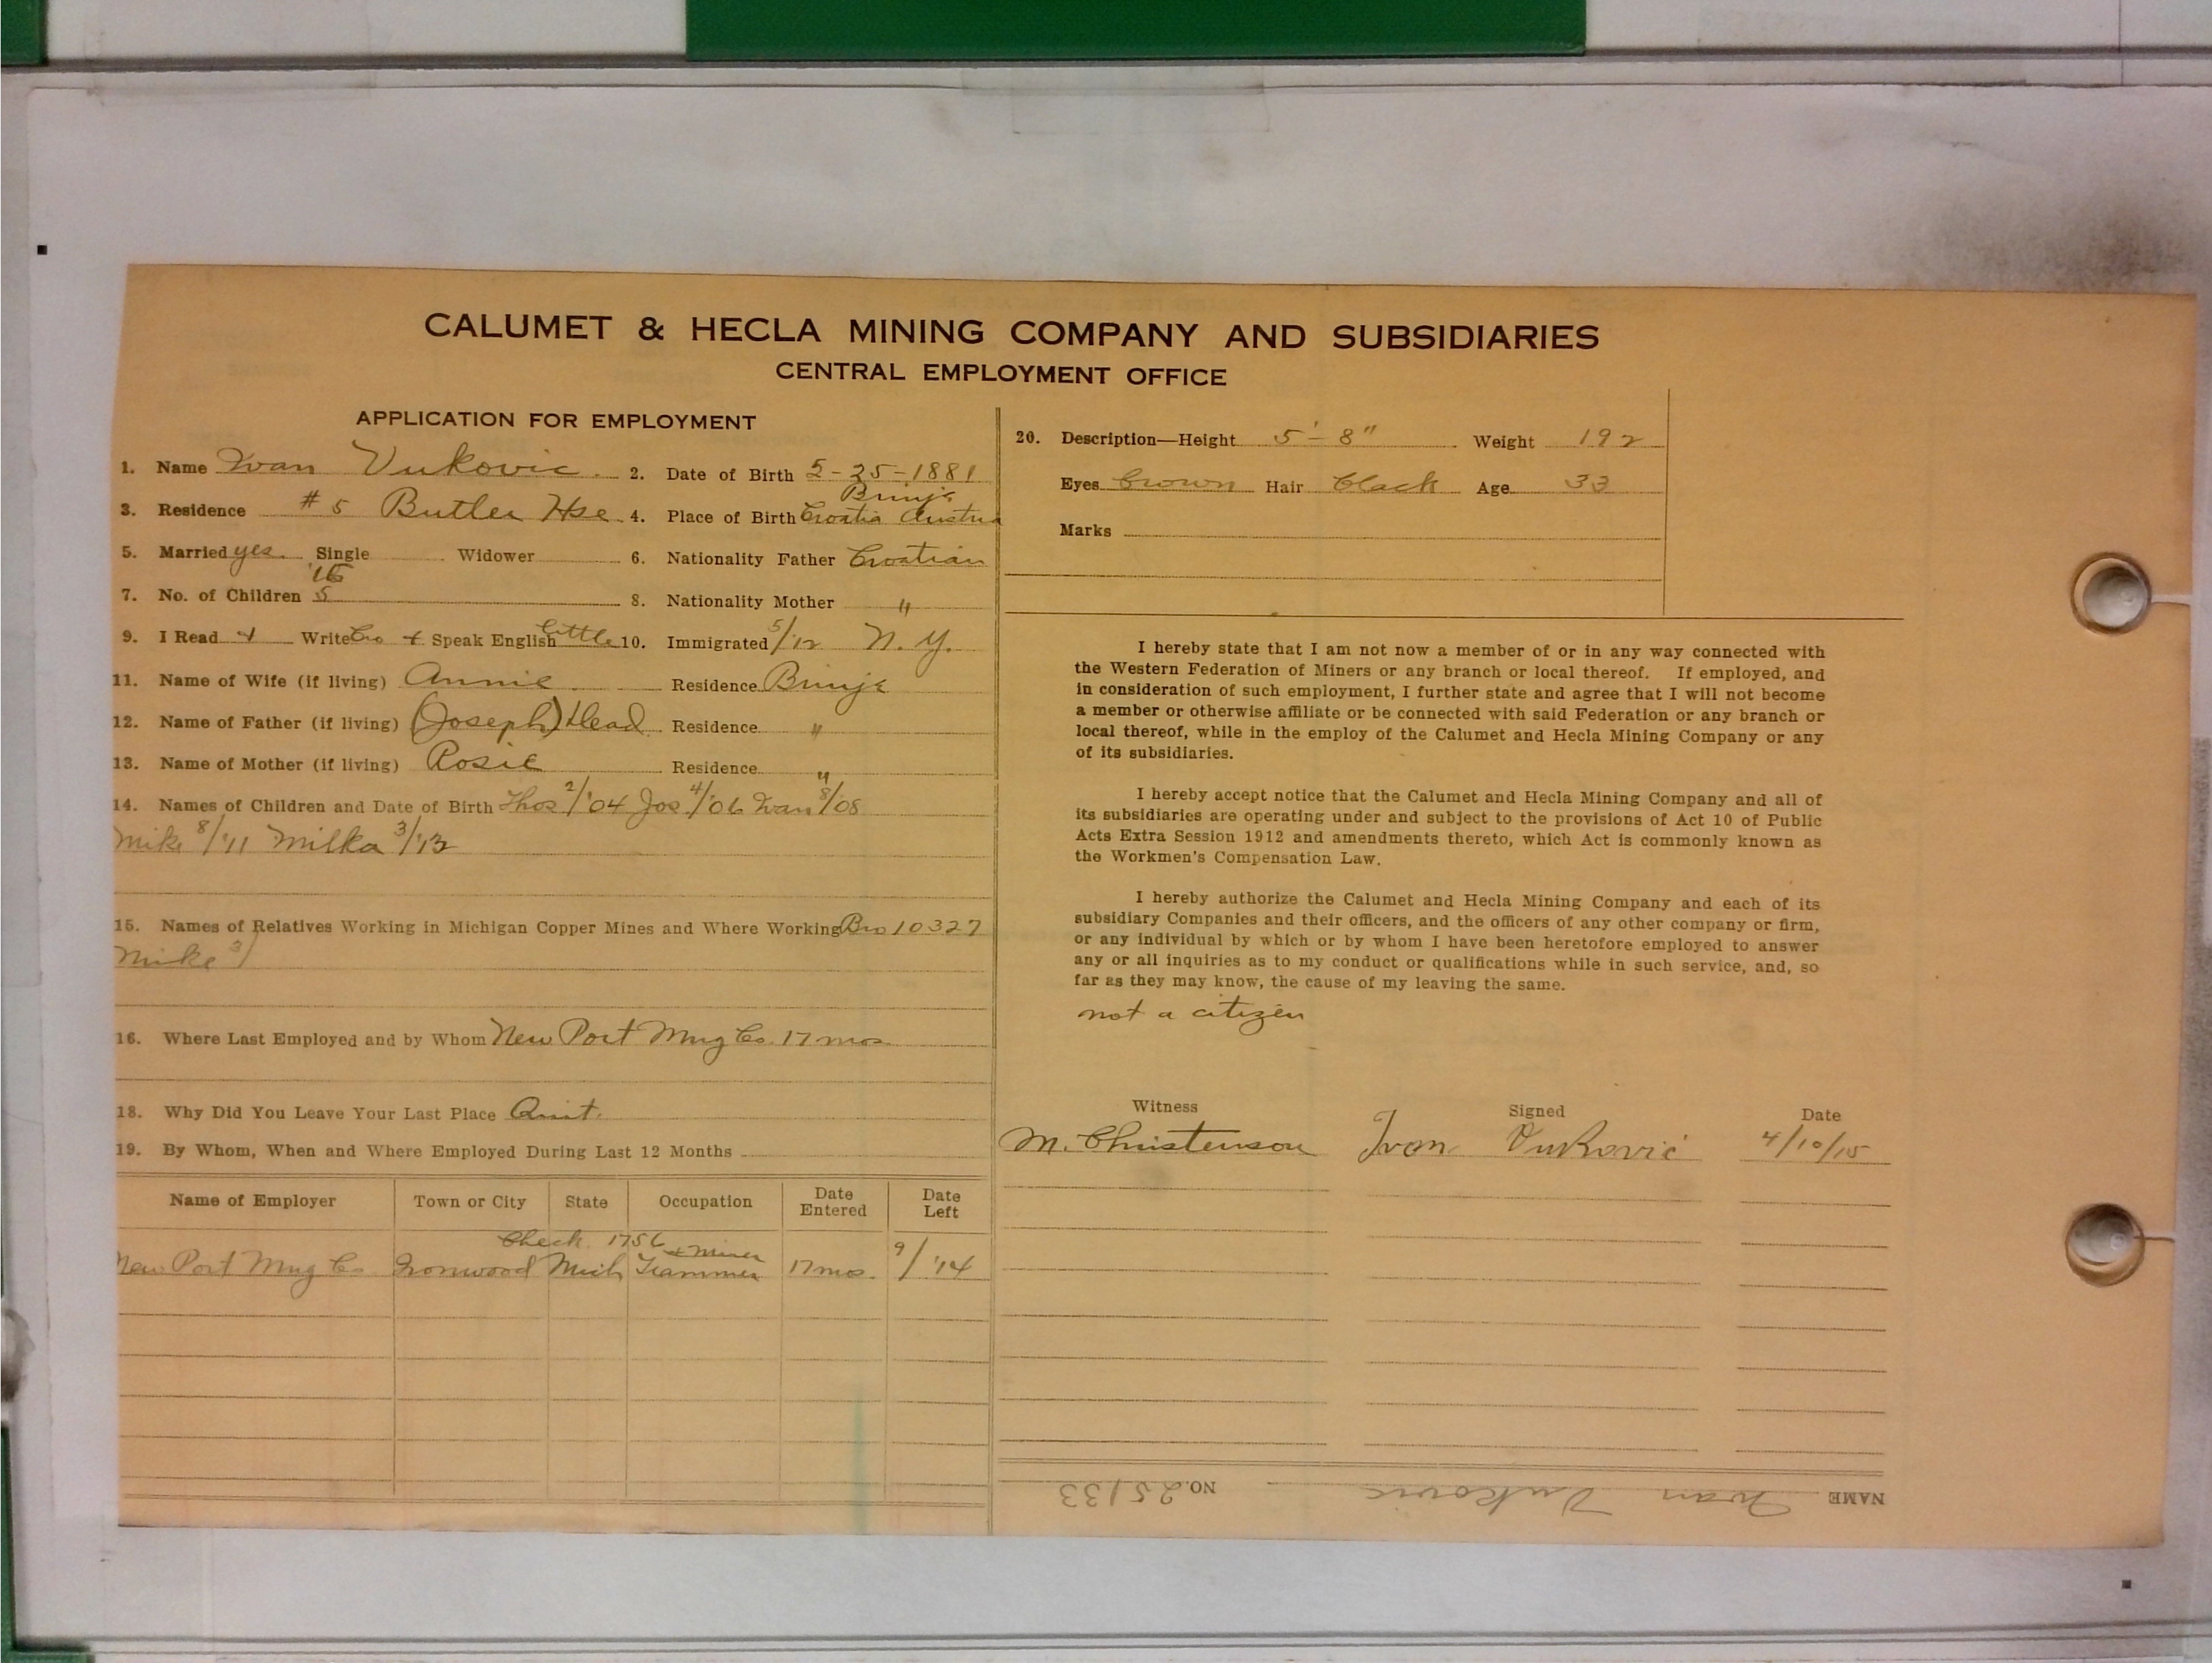 CALUMET & HECLA MINING COMPANY AND SUBSIDIARIES
CENTRAL EMPLOYMENT OFFICE
APPLICATION FOR EMPLOYMENT
1. Name Ivan Vukovic. 2. Date of Birth 5-25-1881
3. Residence #5 Butler Hse 4. Place of Birth Brinje Croatia Austria
5. Married yes. Single Widower 6. Nationality Father Croatian
7. No. of Children 5 8. Nationality Mother "
9. I Read + Write Cro + Speak English little 10. Immigrated 5/12 N.Y.
11. Name of Wife (if living) Annie Residence Brinje
12. Name of Father (if living) (Joseph) Dead Residence "
13. Name of Mother (if living) Rosie Residence "
14. Names of Children and Date of Birth Thos 2/'04 Jos 4/'06 Ivan 8/08
Mike 8/'11 Milka 3/'13
15. Names of Relatives Working in Michigan Copper Mines and Where Working Bro 10327
Mike
16. Where Last Employed and by Whom New Port Mng Co. 17 mos
18. Why Did You Leave Your Last Place Quit.
19. By Whom, When and Where Employed During Last 12 Months
Name of Employer Town or City State Occupation Date Entered Date Left
Check 1756
New Port Mng Co Ironwood Mich Trammer & Miner 17 mos. 9/'14
20. Description—Height 5'-8" Weight 192
Eyes brown Hair black Age 33
Marks
I hereby state that I am not now a member of or in any way connected with
the Western Federation of Miners or any branch or local thereof. If employed, and
in consideration of such employment, I further state and agree that I will not become
a member or otherwise affiliate or be connected with said Federation or any branch or
local thereof, while in the employ of the Calumet and Hecla Mining Company or any
of its subsidiaries.
I hereby accept notice that the Calumet and Hecla Mining Company and all of
its subsidiaries are operating under and subject to the provisions of Act 10 of Public
Acts Extra Session 1912 and amendments thereto, which Act is commonly known as
the Workmen's Compensation Law.
I hereby authorize the Calumet and Hecla Mining Company and each of its
subsidiary Companies and their officers, and the officers of any other company or firm,
or any individual by which or by whom I have been heretofore employed to answer
any or all inquiries as to my conduct or qualifications while in such service, and, so
far as they may know, the cause of my leaving the same.
not a citizen
Witness Signed Date
M. Christenson Ivan Vuković 4/10/15
NAME Ivan Vukovic NO. 25133